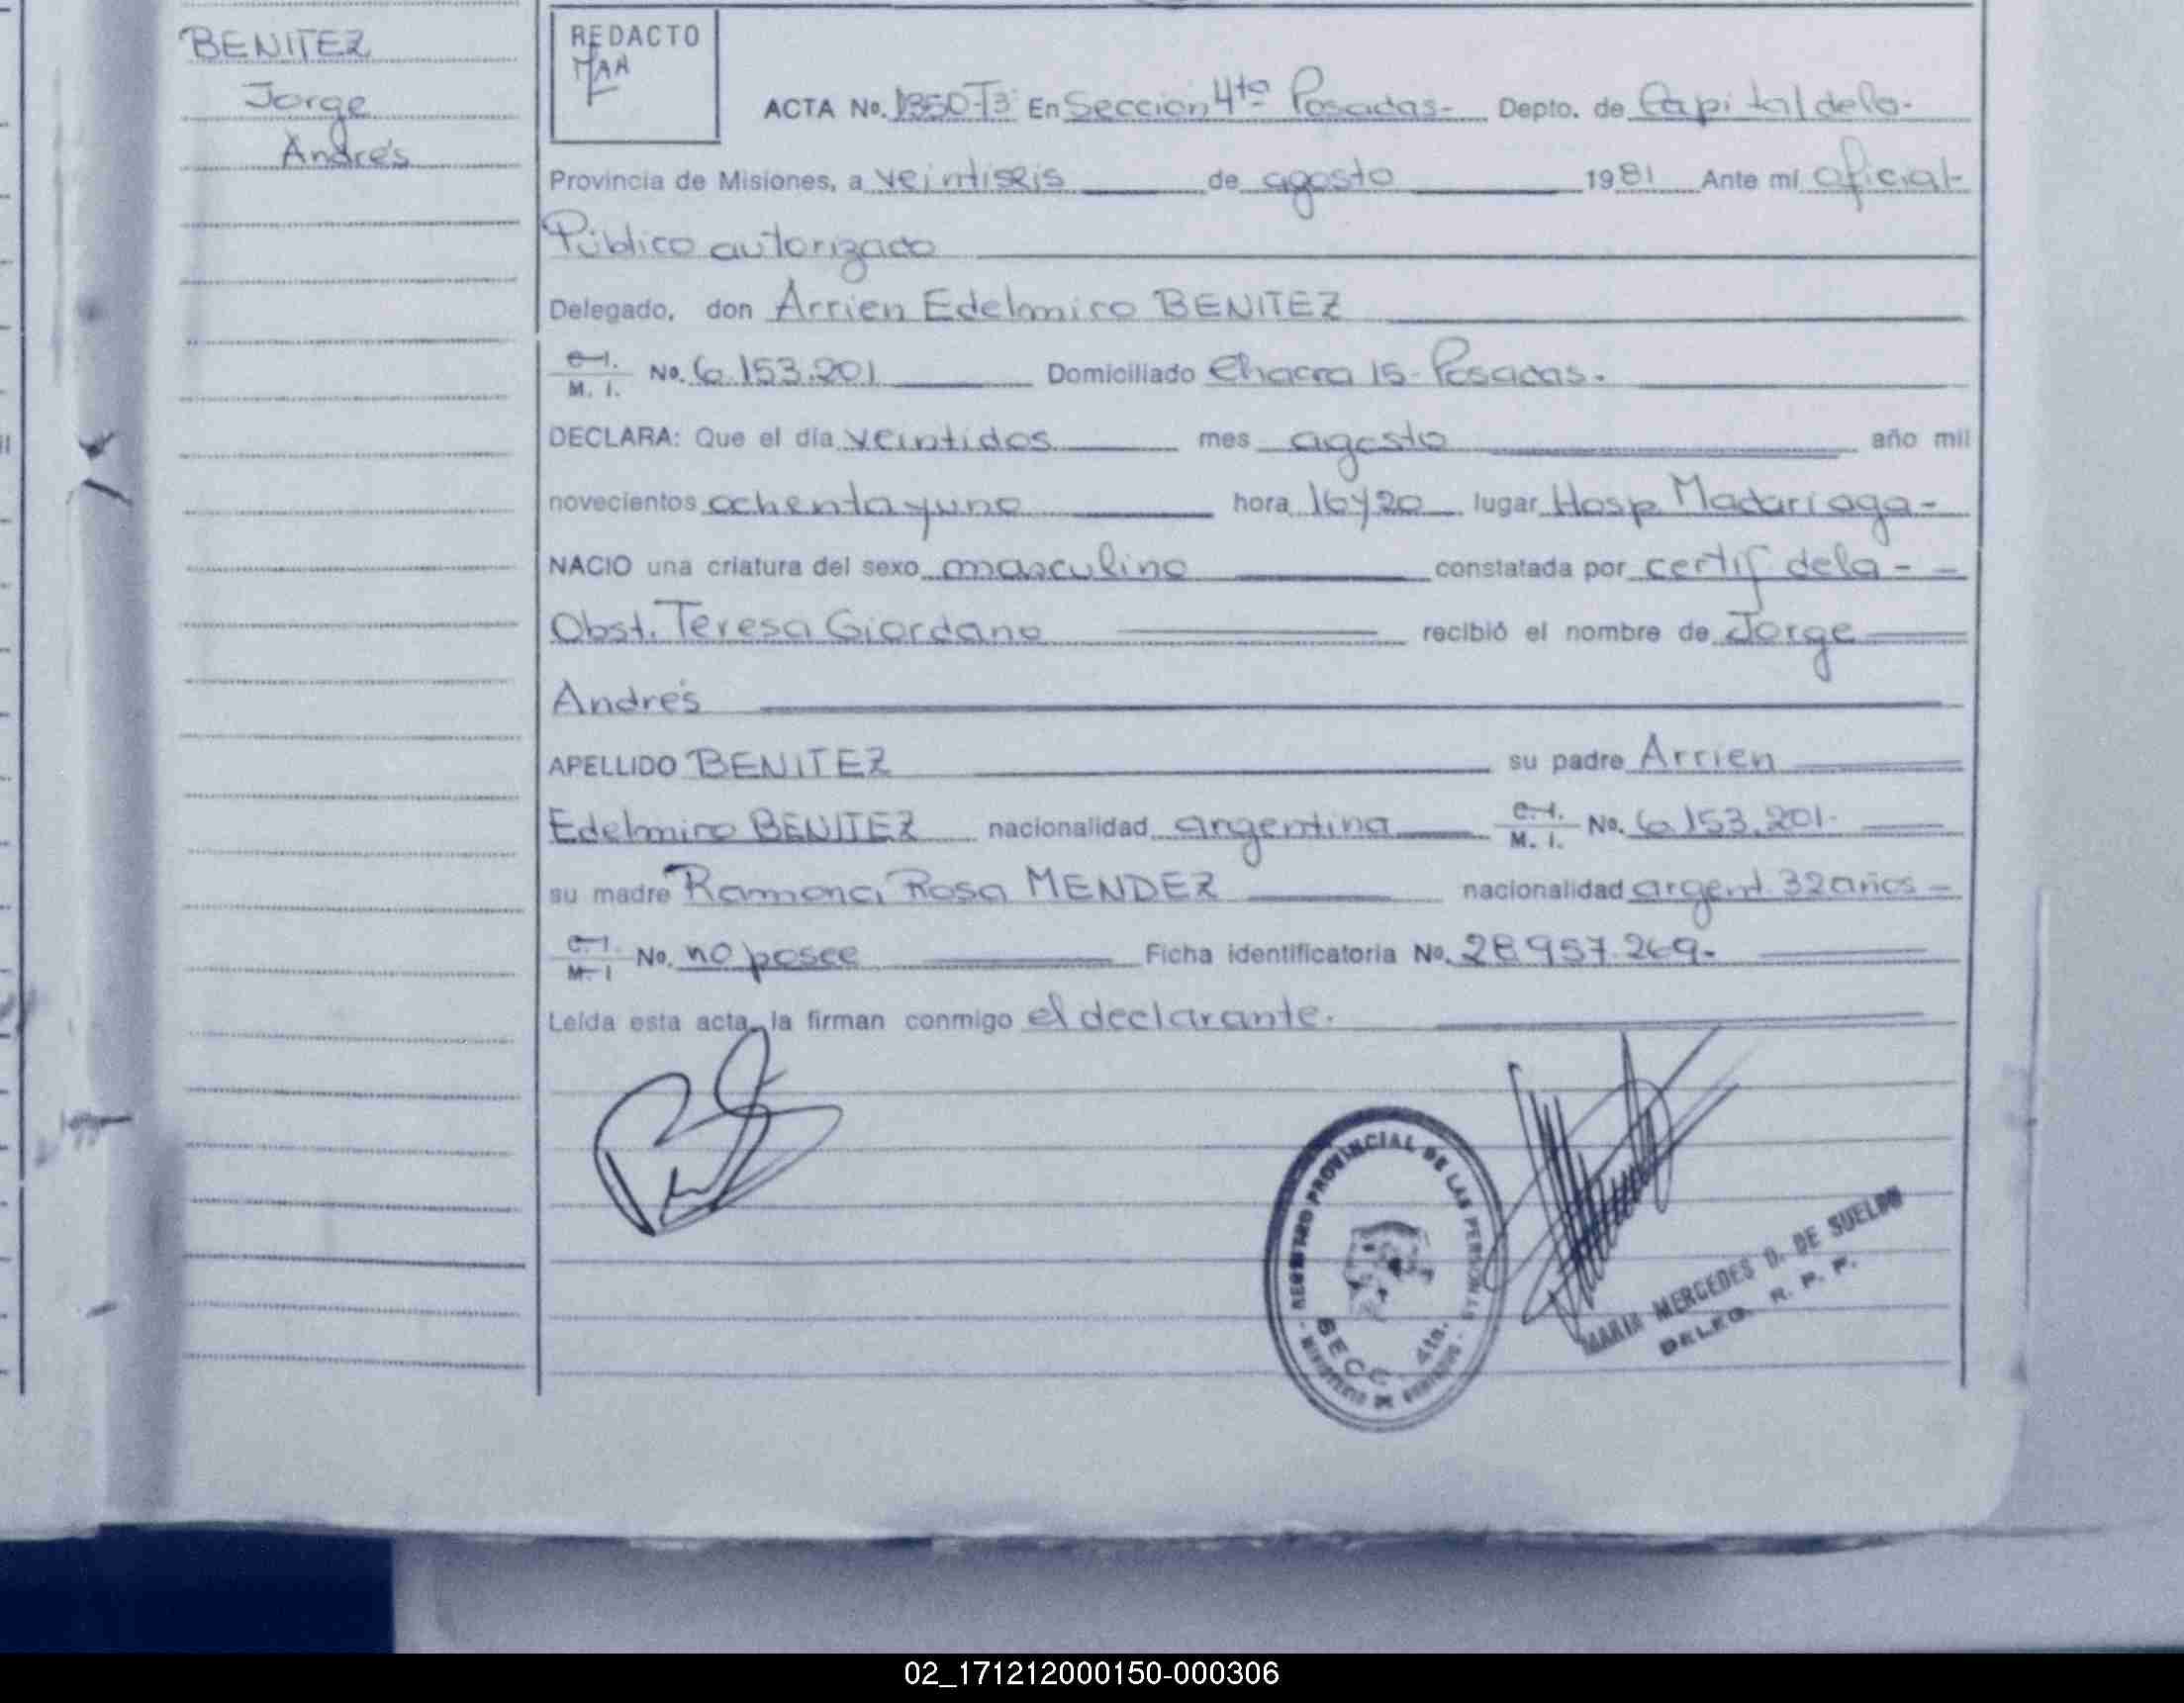 BENITEZ
Jorge
Andrés
REDACTO
ACTA No. 1350-T3 En Sección 4ta Posadas- Depto. de Capital de la-
Provincia de Misiones, a veintiseis de agosto 1981 Ante mí oficial-
Público autorizado
Delegado, don Arrien Edelmiro BENITEZ
C. I.
M. I. No. 6.153.201 Domiciliado Chacra 15- Posadas.
DECLARA: Que el día veintidos mes agosto año mil
novecientos ochenta y uno hora 16 y 20 lugar Hosp Madariaga-
NACIO una criatura del sexo masculino constatada por certif de la - -
Obst. Teresa Giordano recibió el nombre de Jorge
Andrés
APELLIDO BENITEZ su padre Arrien
Edelmiro BENITEZ nacionalidad argentina C. I.
M. I. No. 6.153.201-
su madre Ramona Rosa MENDEZ nacionalidad argent. 32 años -
C. I.
M. I No. no posee Ficha identificatoria No. 28.957.269-
Leída esta acta, la firman conmigo el declarante.
REGISTRO PROVINCIAL DE LAS PERSONAS
SECC. 4ta.
- MINISTERIO DE GOBIERNO -
MARIA MERCEDES D. DE SUELDO
DELEG. R. P. P.
02_171212000150-000306